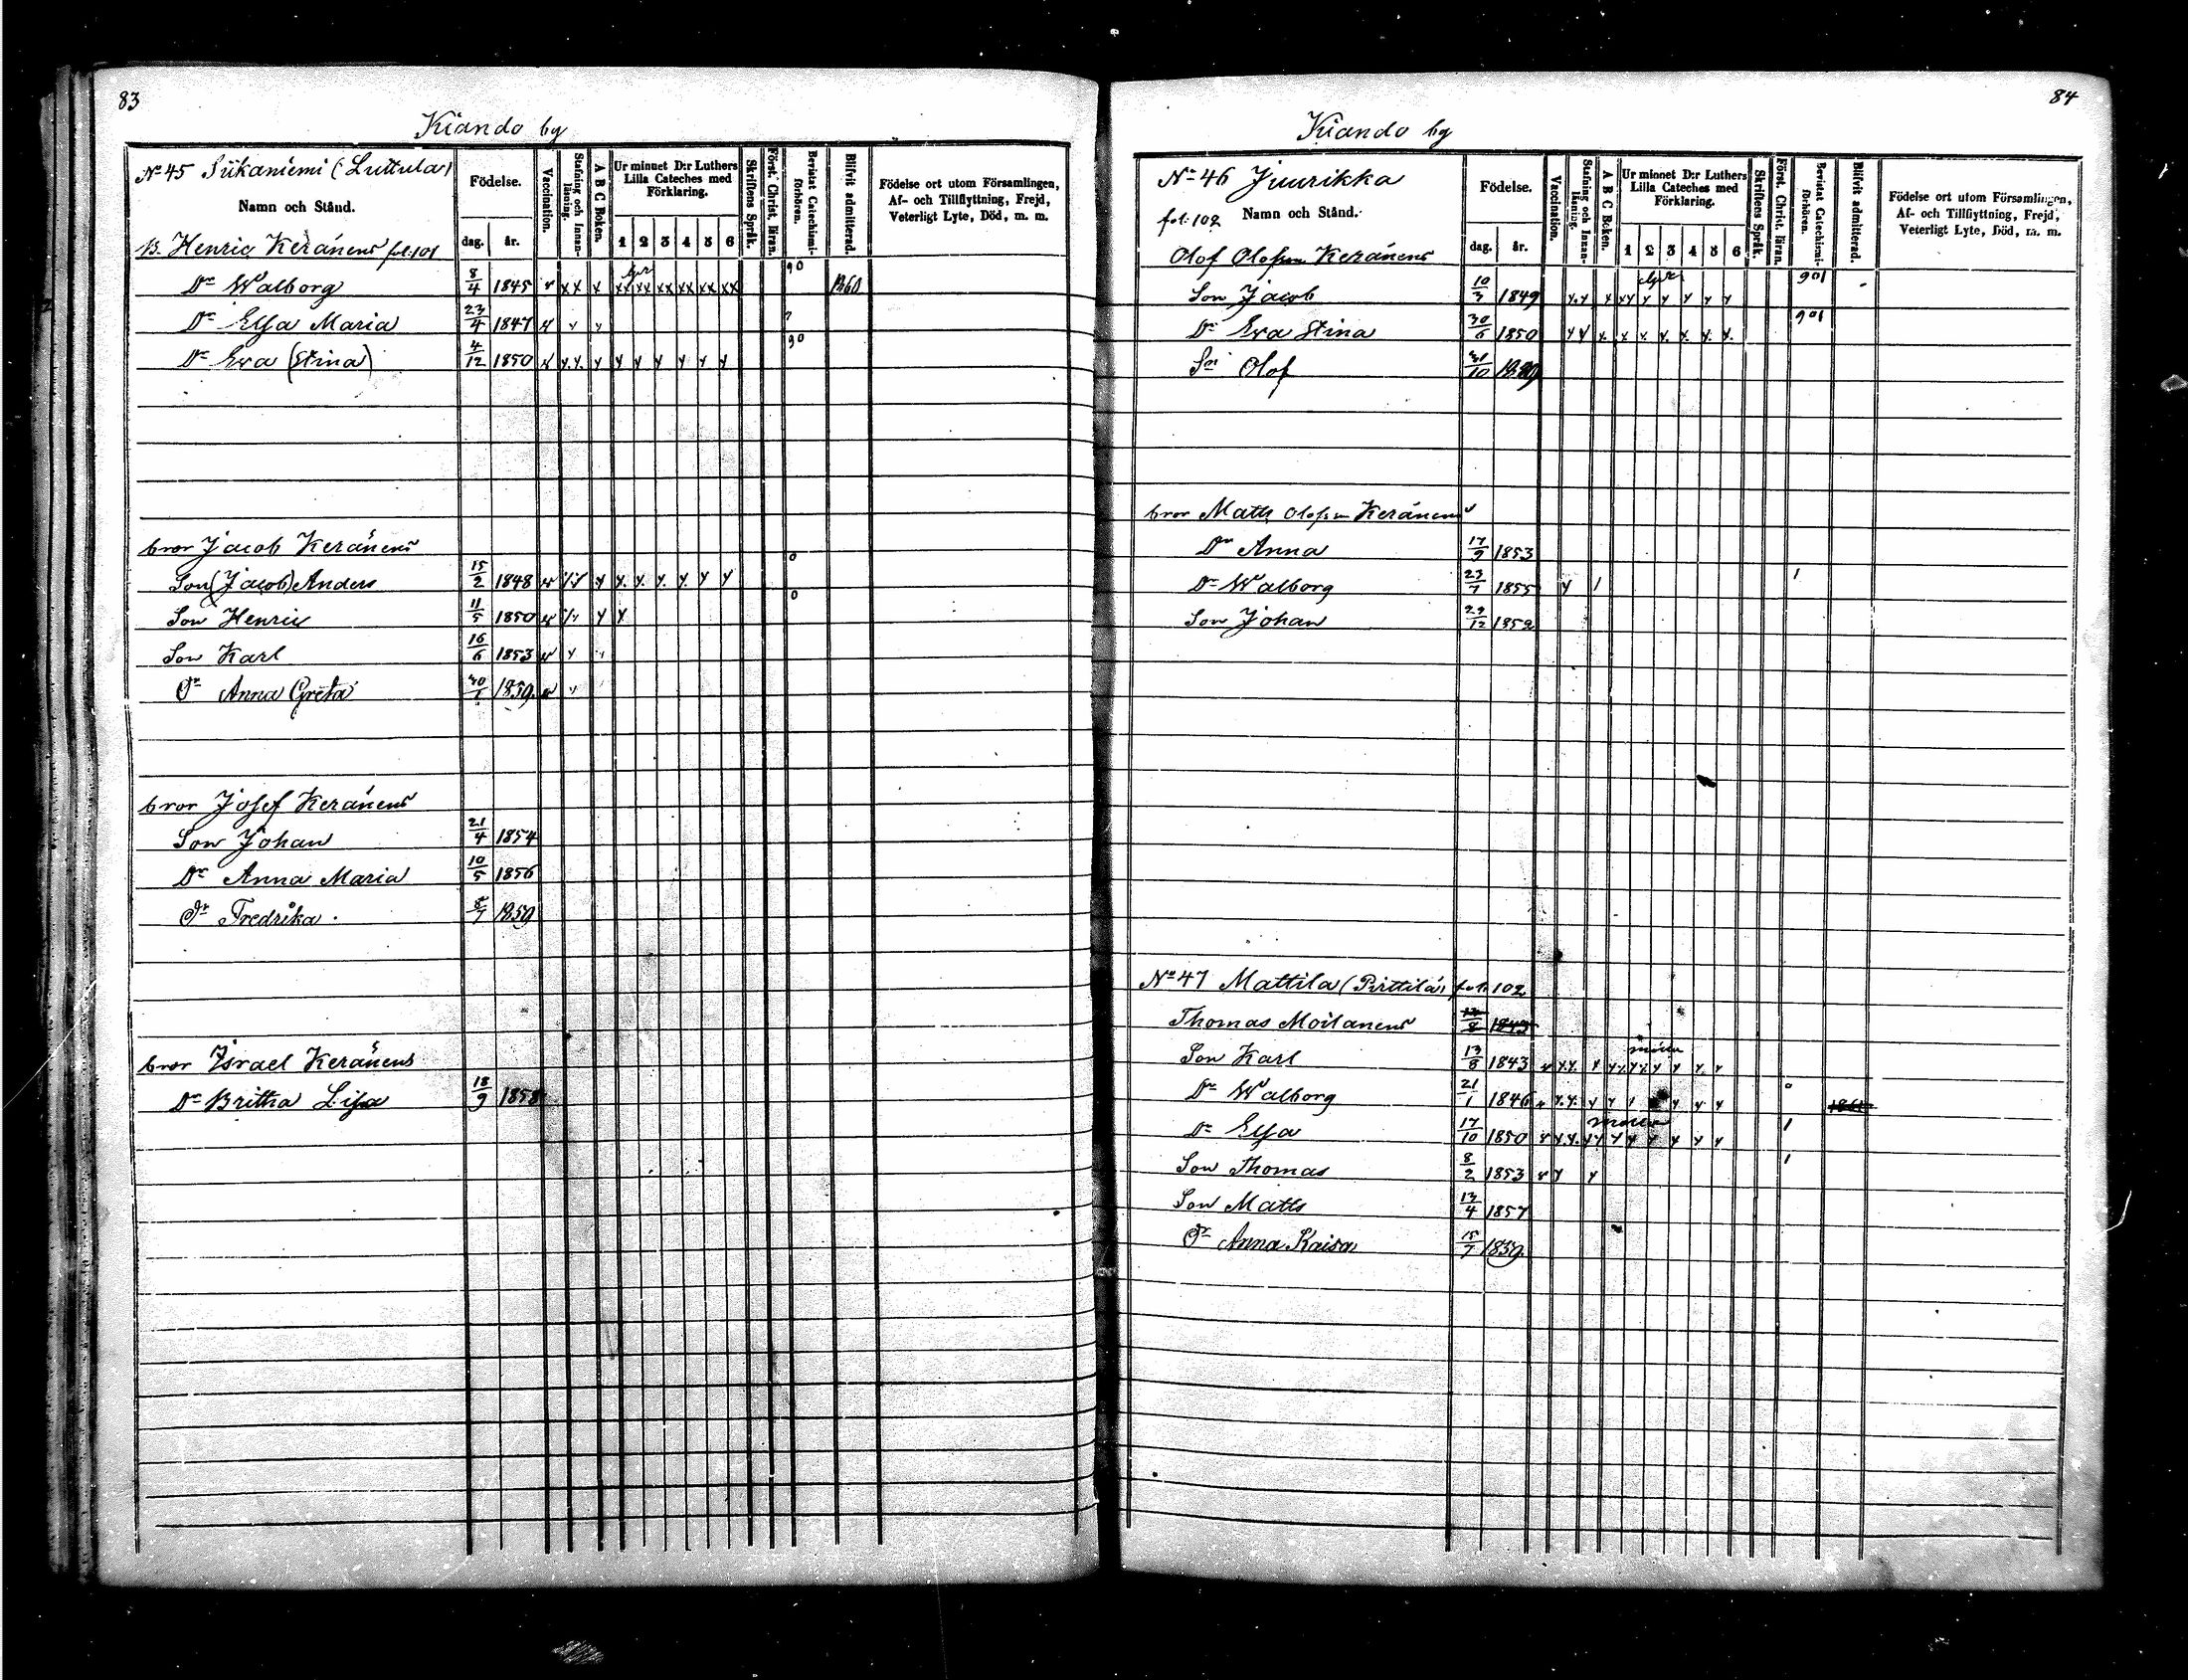 83
Kiando by
No 45 Siikaniemi (Luttula)
Namn och Stånd.
Födelse.
dag. år.
Vaccination.
Stafning och Innanläsning.
A B C Boken.
Ur minnet D:r Luthers Lilla Cateches med Förklaring.
1 2 3 4 5 6
Skriftens Språk.
Först. Christ. läran.
Bevistat Catechismiförhören.
Blifvit admitterad.
Födelse ort utom Församlingen, Af- och Tillflyttning, Frejd, Veterligt Lyte, Död, m. m.
B. Henric Keränens fol: 101
Dr Walborg 8/4 1845 90 1860
Dr Elsa Maria 23/4 1847
Dr Eva (Stina) 4/12 1850 90
bror Jacob Keränens
Son (Jacob) Anders 15/2 1848 0
Son Henric 11/5 1850 0
Son Karl 16/6 1853
Dr Anna Greta 1859
bror Josef Keränens
Son Johan 21/4 1854
Dr Anna Maria 10/5 1856
Dr Fredrika 8/7 1859
bror Israel Keränens
Dr Britha Lisa 18/9 1858
84
Kiando by
No 46 Juurikka
fol: 102
Namn och Stånd.
Födelse.
dag. år.
Vaccination.
Stafning och Innanläsning.
A B C Boken.
Ur minnet D:r Luthers Lilla Cateches med Förklaring.
1 2 3 4 5 6
Skriftens Språk.
Först. Christ. läran.
Bevistat Catechismiförhören.
Blifvit admitterad.
Födelse ort utom Församlingen, Af- och Tillflyttning, Frejd, Veterligt Lyte, Död, m. m.
Olof Olofsson Keränens
Son Jacob 10/3 1849 901
Dr Eva Stina 30/6 1850 901
Sn Olof 31/10
bror Matts Olofsson Keränens
Dr Anna 17/9 1853
Dr Walborg 23/7 1855 1
Son Johan 29/12
No 47 Mattila (Pirttilä) fol: 102
Thomas Moilanens 1843
Son Karl 13/8 1843
Dr Walborg 21/1 1846 0 1861
Dr Elsa 17/10 1850 1
Son Thomas 8/2 1853 1
Son Matts 13/4 1857
Dr Anna Kaisa 15/7 1859